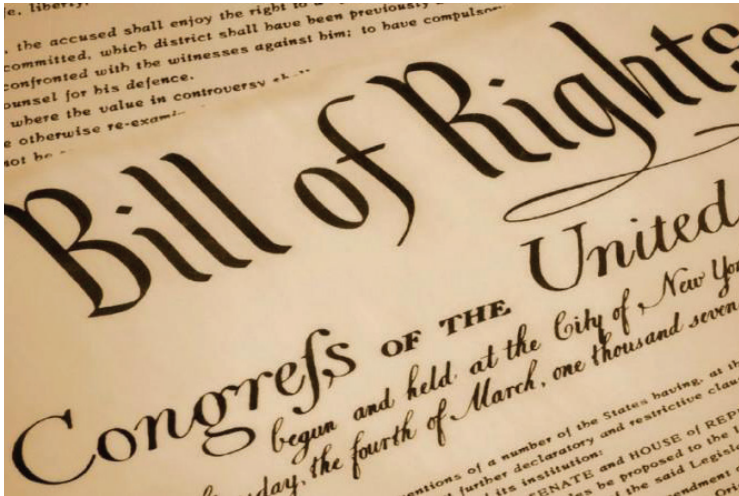 e, liberty,
, the accused shall enjoy the right to a
committed, which district shall have been previously
confronted with the witnesses against him; to have compulsor
ounsel for his defence.
where the value in controversy shall
e otherwise re-exami
not be
Bill of Rights
Congreſs OF THE United
begun and held at the City of New Yor
day, the fourth of March, one thousand seven
entions of a number of the States having, at th
further declaratory and restrictive clau
its institution:
ENATE and HOUSE of REP
es be proposed to the L
the said Legisl
ndment
Ori